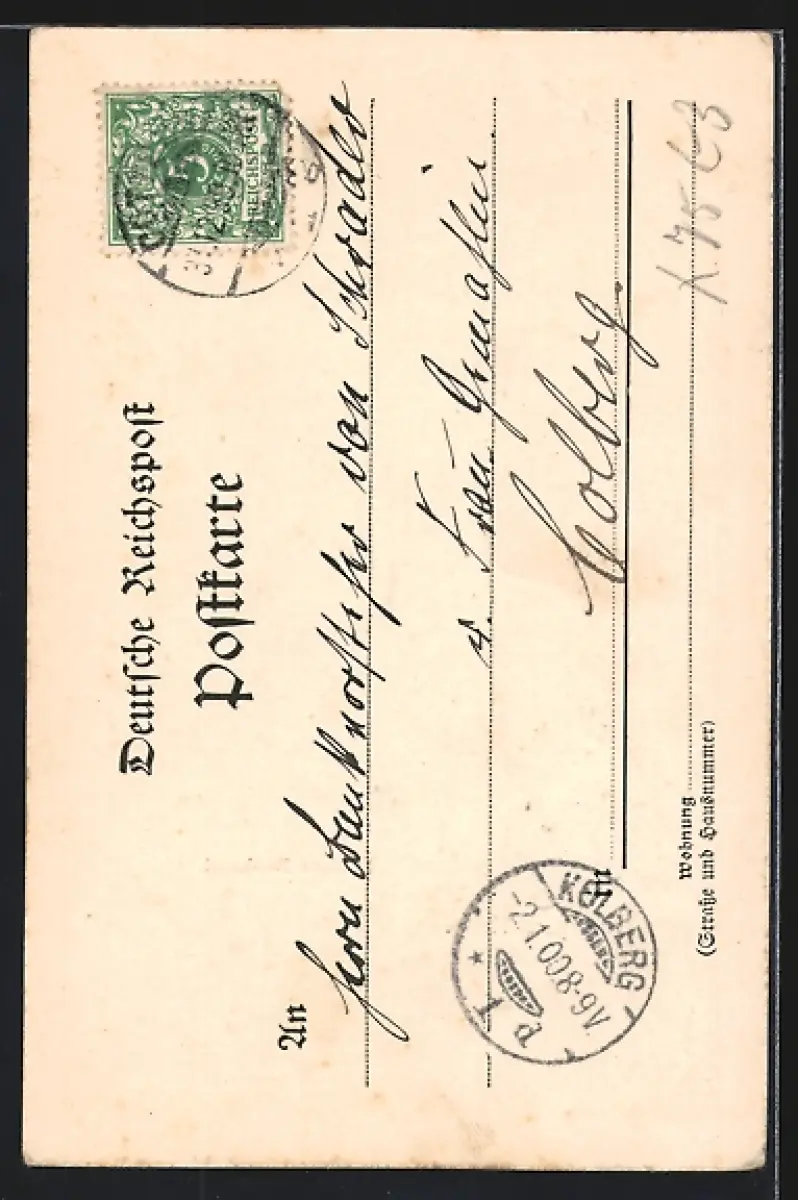 Deutsche Reichspost
Postkarte
5
REICHSPOST
An
Herrn Bankvorsteher von Schrader
u. Frau Gemahlin
in Colberg.
Wohnung
(Straße und Hausnummer)
KOLBERG
-2.1.00.8-9V.
* 1 a